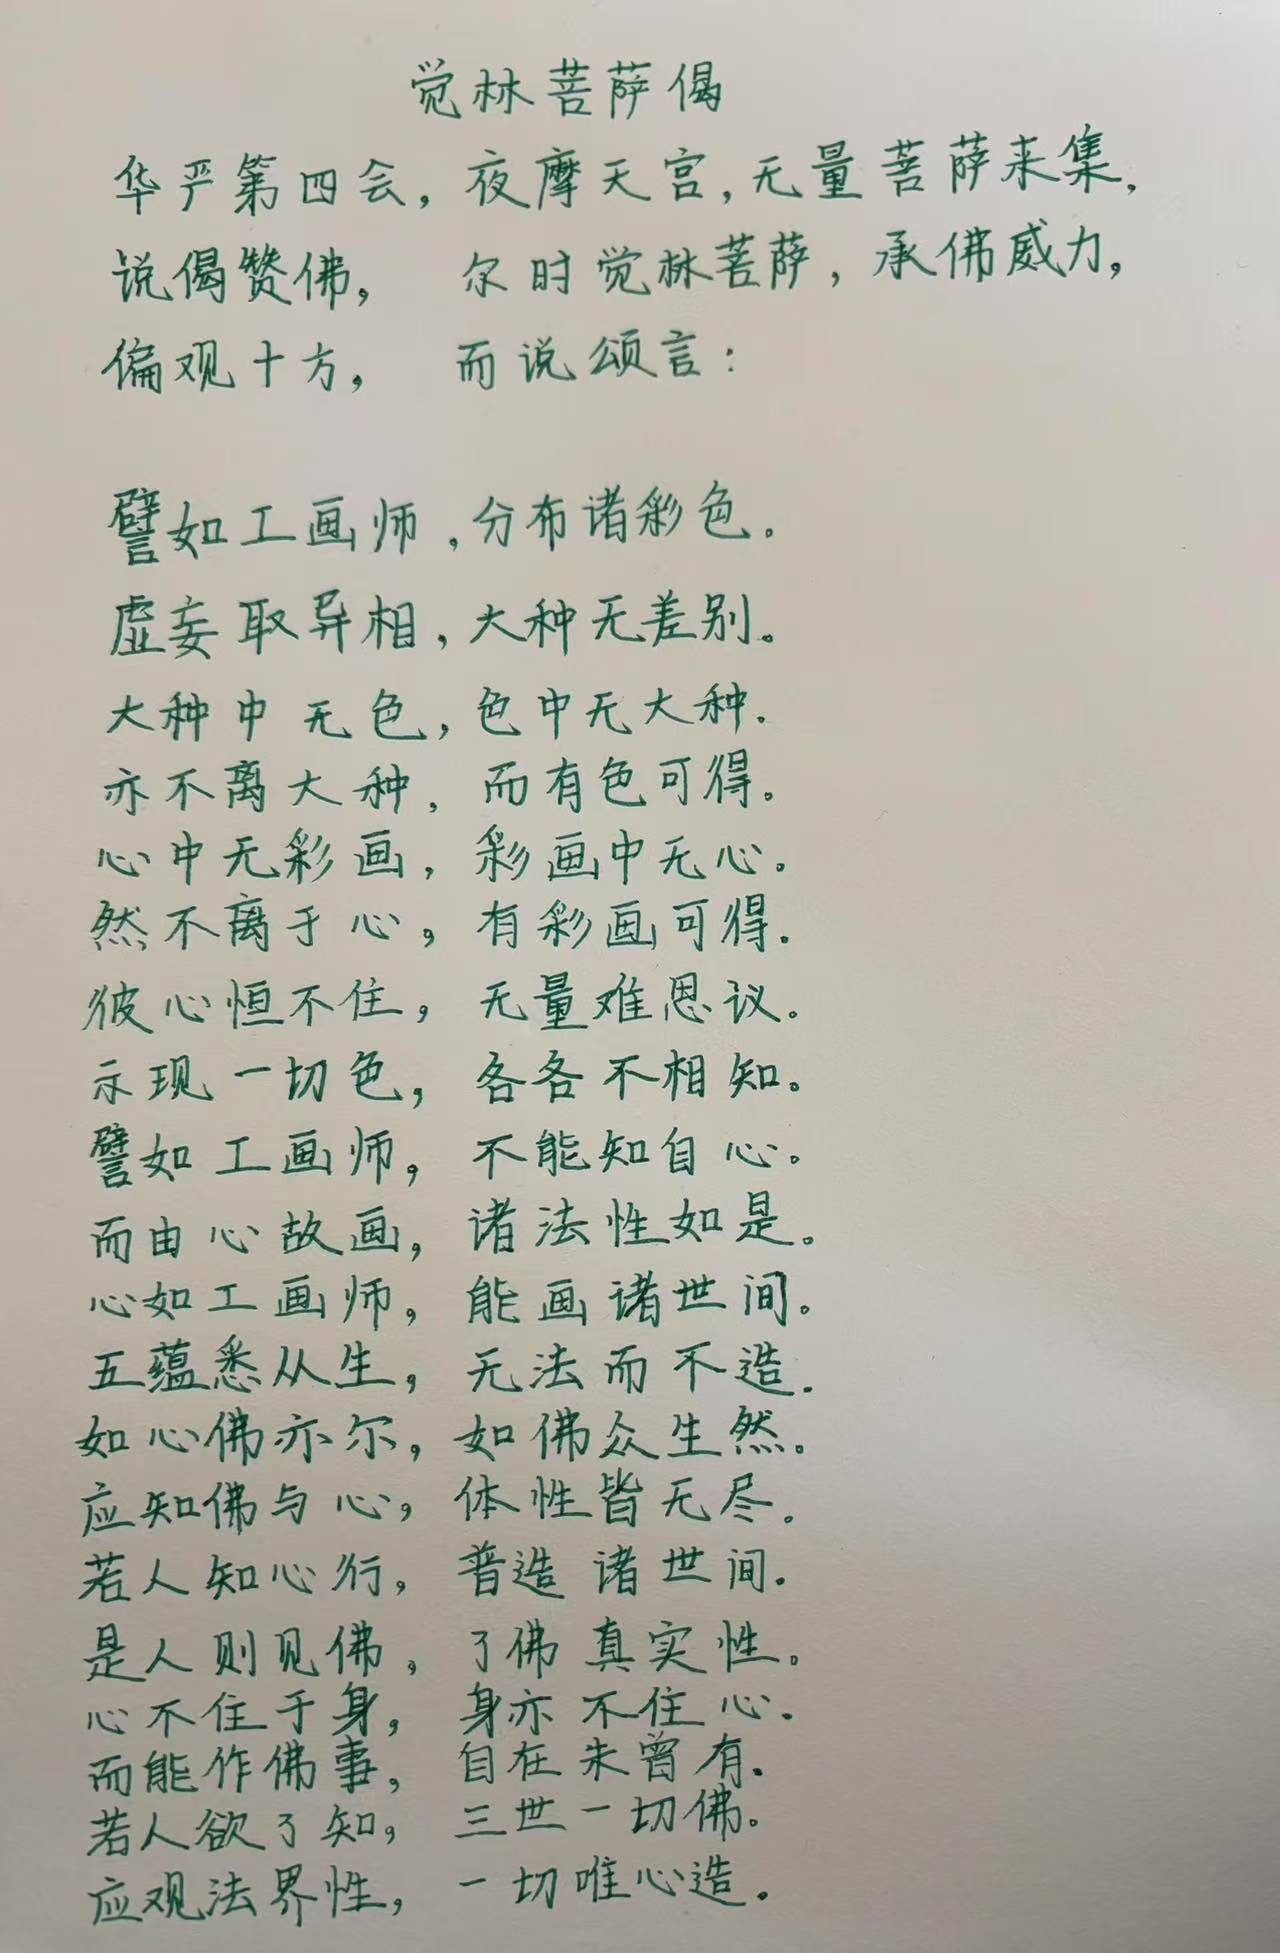 觉林菩萨偈
华严第四会，夜摩天宫，无量菩萨来集，
说偈赞佛， 尔时觉林菩萨，承佛威力，
偏观十方， 而说颂言：
譬如工画师，分布诸彩色。
虚妄取异相，大种无差别。
大种中无色，色中无大种。
亦不离大种，而有色可得。
心中无彩画，彩画中无心。
然不离于心，有彩画可得。
彼心恒不住，无量难思议。
示现一切色，各各不相知。
譬如工画师，不能知自心。
而由心故画，诸法性如是。
心如工画师，能画诸世间。
五蕴悉从生，无法而不造。
如心佛亦尔，如佛众生然。
应知佛与心，体性皆无尽。
若人知心行，普造诸世间。
是人则见佛，了佛真实性。
心不住于身，身亦不住心。
而能作佛事，自在未曾有。
若人欲了知，三世一切佛。
应观法界性，一切唯心造。